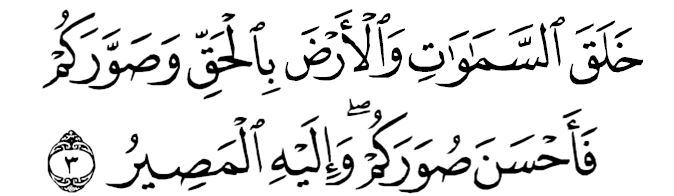 خَلَقَ ٱلسَّمَـٰوَٰتِ وَٱلْأَرْضَ بِٱلْحَقِّ وَصَوَّرَكُمْ
فَأَحْسَنَ صُوَرَكُمْ ۖ وَإِلَيْهِ ٱلْمَصِيرُ ٣